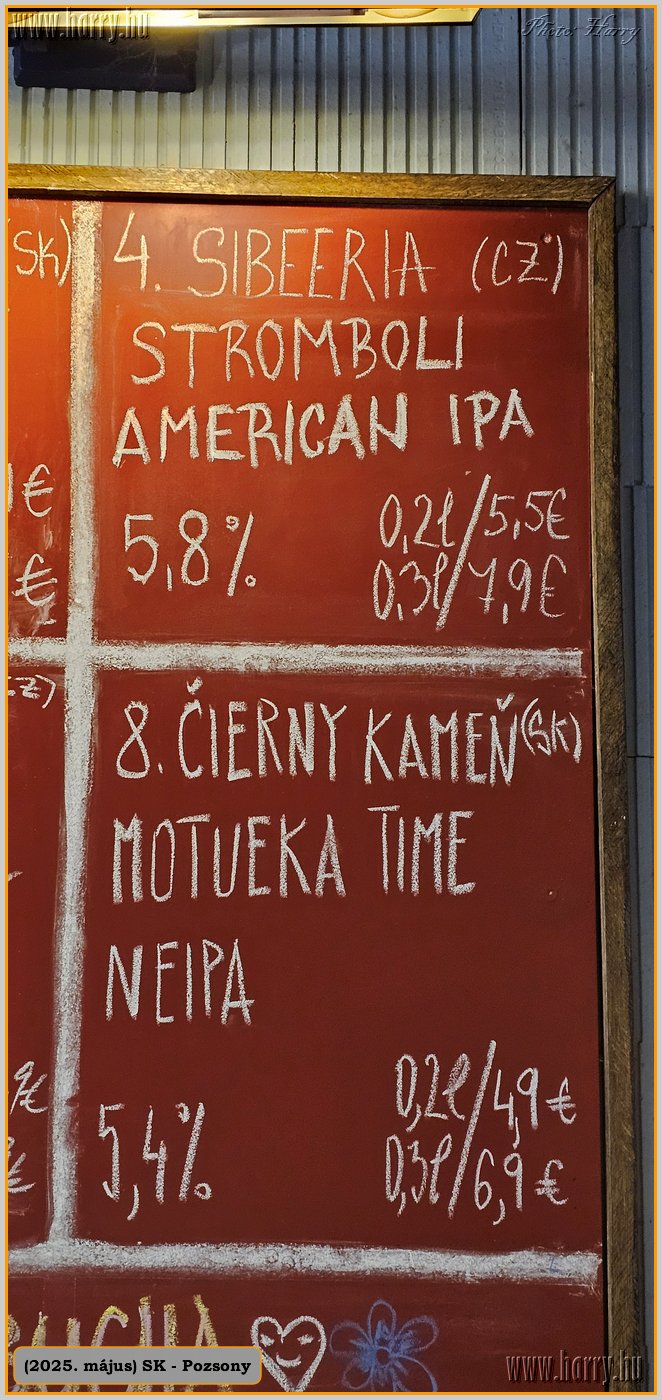 www.horry.hu
Photo: Horry
(SK)
4. SIBEERIA (CZ)
STROMBOLI
AMERICAN IPA
€
5,8%
0,2l/5,5€
0,3l/7,9€
€
8. ČIERNY KAMEŇ (SK)
MOTUEKA TIME
NEIPA
9€
5,4%
0,2l/4,9€
0,3l/6,9€
€
(2025. május) SK - Pozsony
www.horry.hu